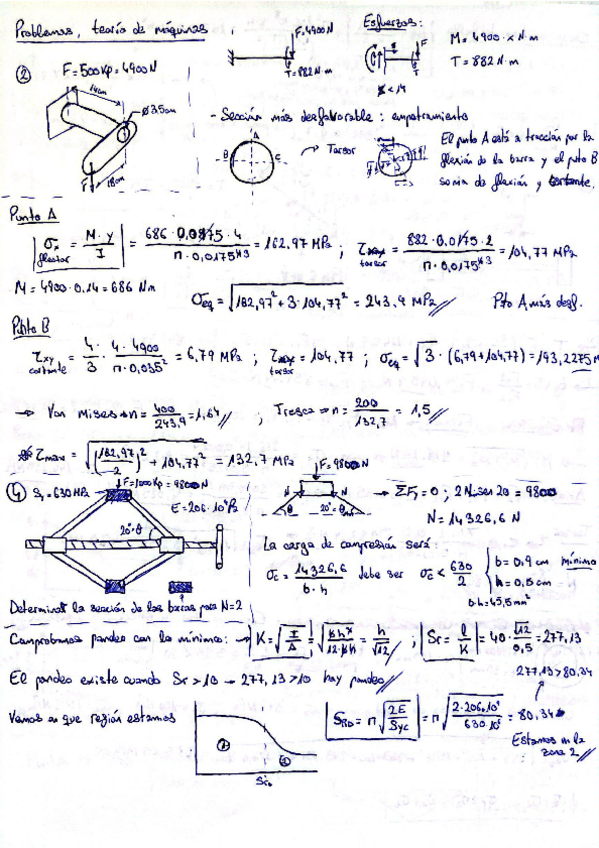 Problemas, teoría de máquinas
F=4900N
T=882N·m
Esfuerzos:
F
T
M = 4900·x N·m
T = 882 N·m
② F = 500Kp = 4900N
14cm
Ø3.5cm
F
18cm
- Sección más desfavorable: empotramiento
A
B
C
→ Torsor
El punto A está a tracción por la
flexión de la barra y el pto B
soma de flexión y cortante.
Punto A
σx flector = M·y / I = 686·0,0175·4 / π·0,0175^4 3 = 162,97 MPa ; τxy torsor = 882·0,0175·2 / π·0,0175^4 3 = 104,77 MPa
M = 4900·0,14 = 686 Nm
σeq = √162,97² + 3·104,77² = 243,9 MPa // Pto A más desf.
Punto B
τxy cortante = 4/3 · 4·4900 / π·0,035² = 6,79 MPa ; τxy torsor = 104,77 ; σeq = √3·(6,79+104,77) = 193,2275 M
→ Von Mises → n = 400/243,9 = 1,64 // ; Tresca → n = 200/132,7 = 1,5 //
τmax = √(162,97/2)² + 104,77² = 132,7 MPa
④ Sy = 630 MPa
F=1000Kp = 9800N
E = 206·10⁹ Pa
20°=θ
F=9800N
N
N
θ
20°=θ
→ ΣFy = 0 ; 2N·sen 20 = 9800
N = 14326,6 N
La carga de compresión será:
σc = 14326,6 / b·h debe ser σc < 630/2 { b = 0,9 cm mínimo
h = 0,5 cm
b·h = 45,5 mm²
Determinar la sección de las barras para N=2
Comprobamos pandeo con lo mínimo: → K = √I/A = √b h³/12·b·h = h/√12 ; Sr = l/K = 40·√12/0,5 = 277,13
277,13 > 80,34
El pandeo existe cuando Sr > 10 → 277,13 > 10 hay pandeo //
Vemos en que región estamos
①
②
Sro
SRD = π√2E/Syc = π√2·206·10⁹/630·10⁶ = 80,34
Estamos en la
zona 2 //